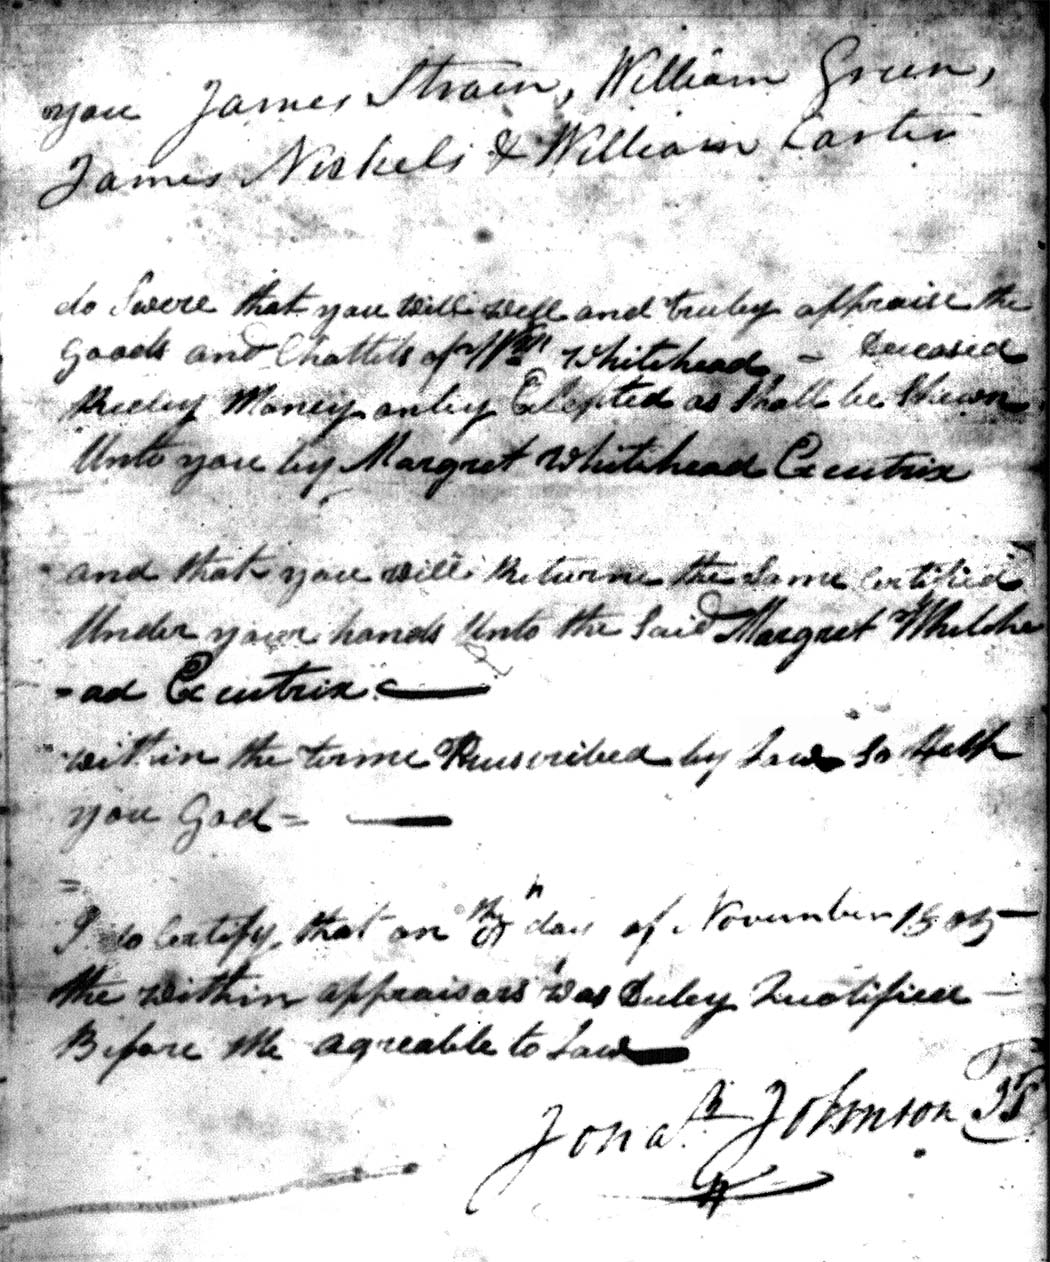 you James Strain, William Green,
James Nickels & William Carter
do Swere that you will well and truley appraise the
Goods and Chattels of Wm Whitehead - Deceased
Reedey Money onley Excepted as Shall be Shewn
Unto you by Margret Whitehead Excutrix
and that you will Returne the Same Certified
Under your hands Unto the Said Margret Whitehe
-ad Excutrix
within the terme Prescribed by Law So Help
you God =
=
I do Certify that on the day of November
the within appraisors was Duley Qualified
Before Me agreable to Law
Jonan Johnson JP